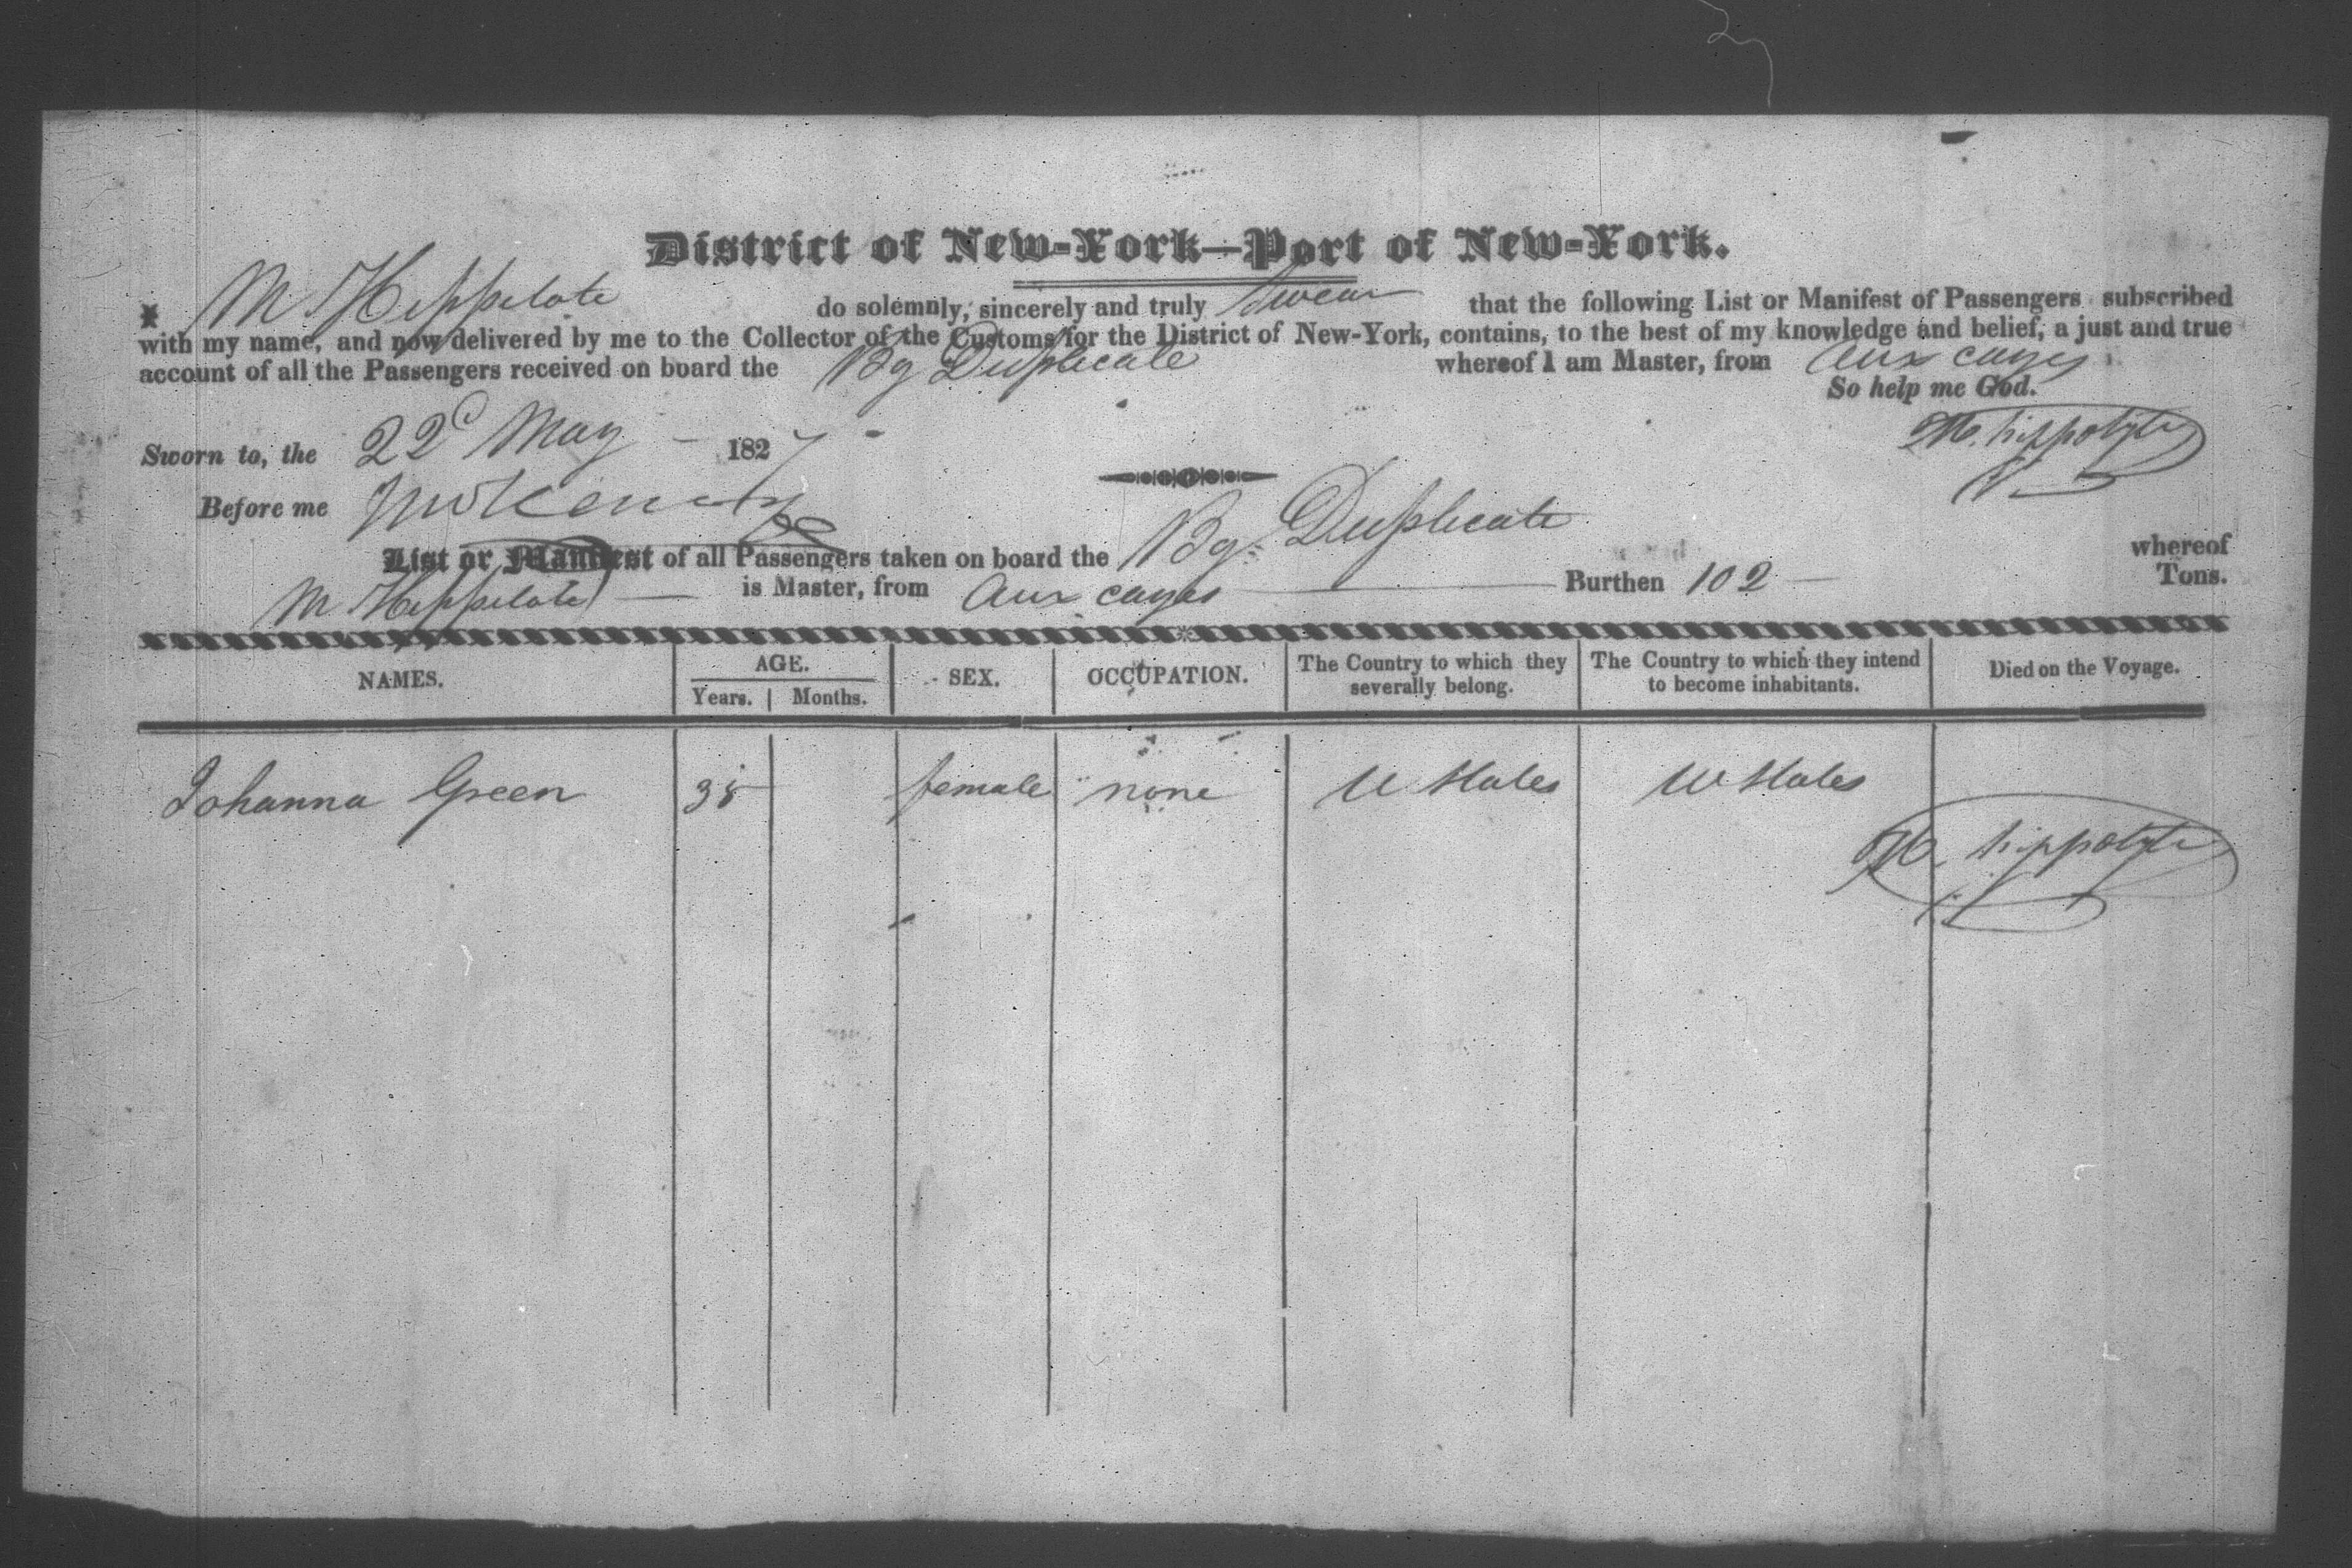 District of New-York—Port of New-York.
I M Hippelate do solemnly, sincerely and truly swear that the following List or Manifest of Passengers subscribed
with my name, and now delivered by me to the Collector of the Customs for the District of New-York, contains, to the best of my knowledge and belief, a just and true
account of all the Passengers received on board the Bg Duplicate whereof I am Master, from Aux cayes
So help me God.
Sworn to, the 22d May 1827 M. hippolyte
Before me
List or Manifest of all Passengers taken on board the Bg. Duplicate whereof
M Hippelate is Master, from Aux cayes Burthen 102 Tons.
NAMES. AGE. SEX. OCCUPATION. The Country to which they severally belong. The Country to which they intend to become inhabitants. Died on the Voyage.
Years. Months.
Johanna Green 35 female none U States U States
M. hippolyte